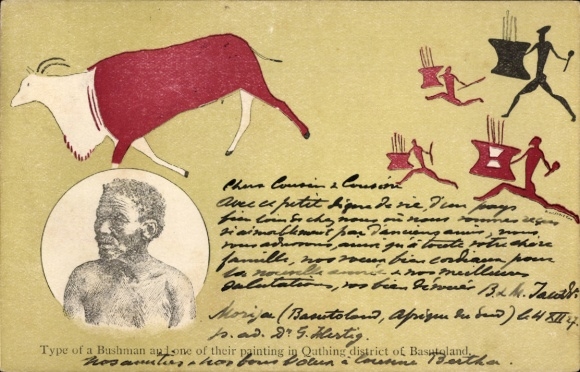 Chers Cousin & Cousine
Avec ce petit signe de vie, d'un pays
bien loin de chez nous où nous sommes reçus
si aimablement par d'anciens amis, nous
vous adressons, ainsi qu'à toute votre chère
famille, nos vœux bien cordiaux pour
la nouvelle année & nos meilleures
salutations, vos bien dévoués B. & M.
Morija (Basutoland, Afrique du Sud) le 4 XII 27.
p. ad. Dr G. Hertig.
Type of a Bushman and one of their painting in Quthing district of Basutoland.
nos amitiés & nos bons vœux à cousine Bertha.